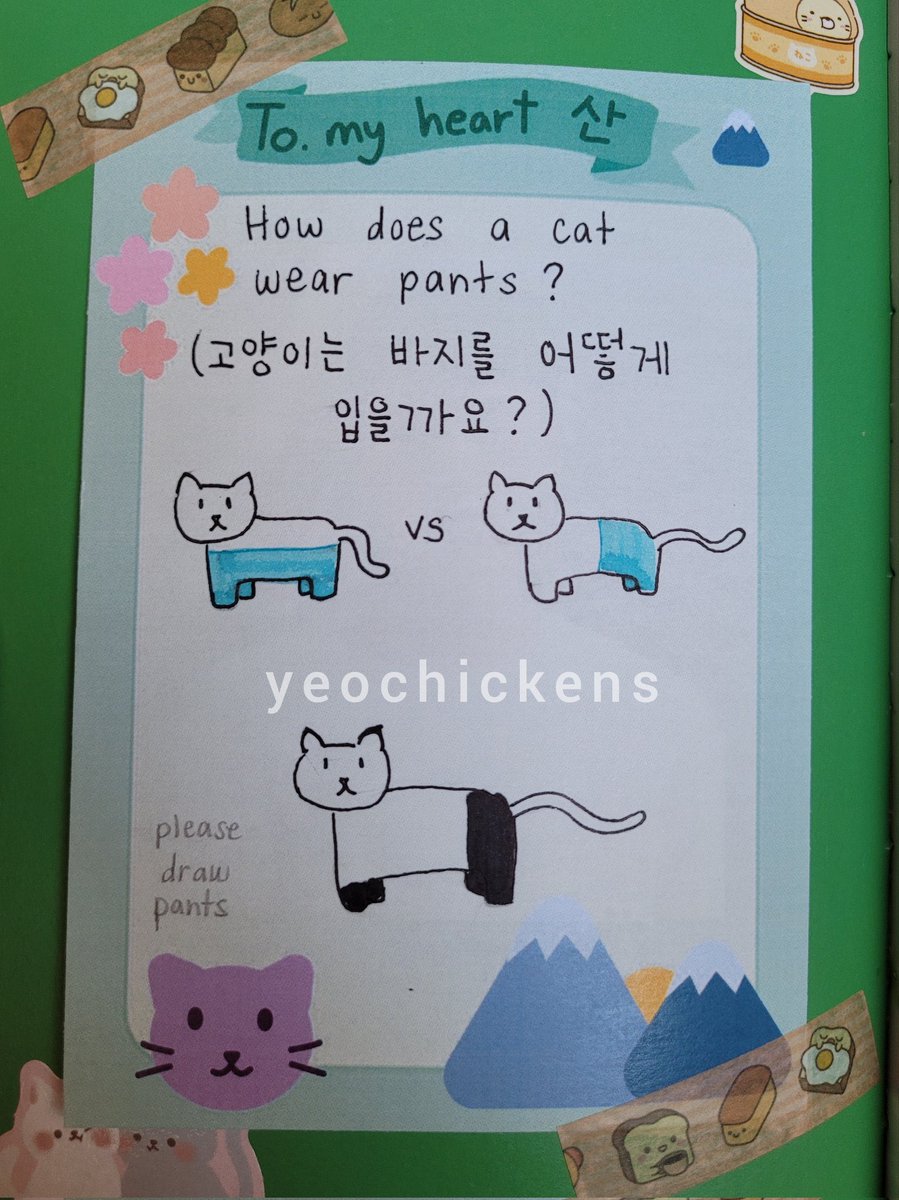 To. my heart 산
How does a cat
wear pants?
(고양이는 바지를 어떻게
입을까요?)
vs
yeochickens
please
draw
pants
ねこ